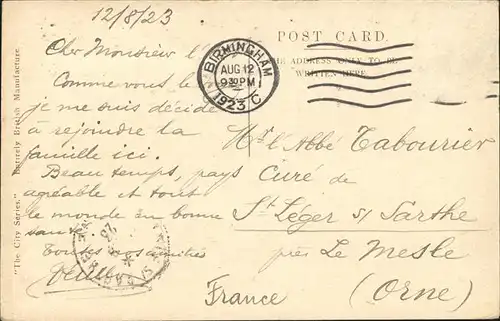 12/8/23
Cher Monsieur l'
Comme vous le
je me suis décidé
à rejoindre la
famille ici.
Beau temps, pays
agréable et tout
le monde en bonne
santé
Toutes nos amitiés
POST CARD.
ADDRESS ONLY TO BE
WRITTEN HERE
BIRMINGHAM
AUG 12
9 30 PM
1923
C
Mr l'Abbé Tabourier
Curé de
St Léger s/ Sarthe
près Le Mesle
(Orne)
France
"The City Series." Entirely British Manufacture